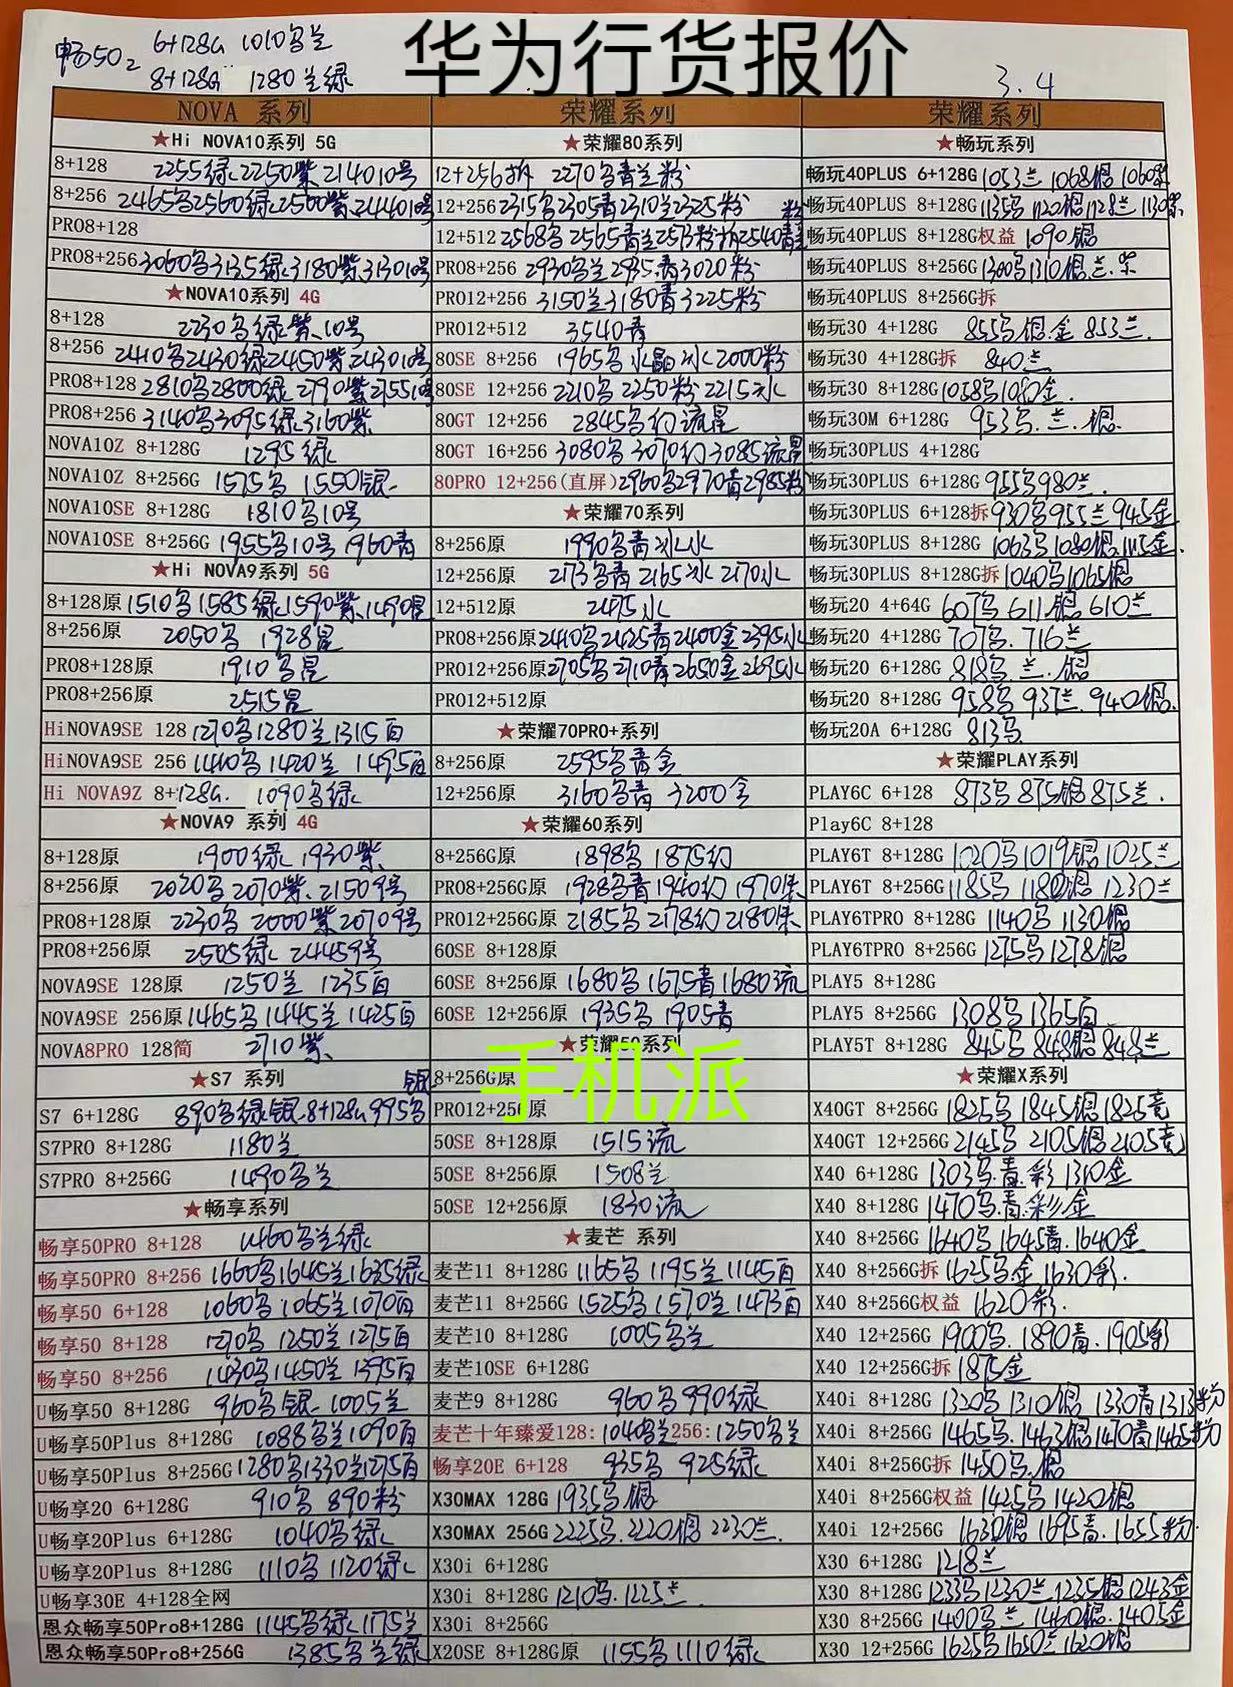 华为行货报价
畅50z 6+128G 1010乌兰
8+128G 1280兰绿
3.4
NOVA 系列
★Hi NOVA10系列 5G
8+128 2255绿 2250紫 2140 10号
8+256 2465乌 2560绿 2560紫 2440 10号
PRO8+128
PRO8+256 3060乌 3135绿 3180紫 3130 10号
★NOVA10系列 4G
8+128 2230乌绿紫10号
8+256 2410乌 2430绿 2450紫 2430 10号
PRO8+128 2810乌 2800绿 2790紫 2755 10号
PRO8+256 3140乌 3095绿 3160紫
NOVA10Z 8+128G 1295绿
NOVA10Z 8+256G 1575乌 1550银
NOVA10SE 8+128G 1810乌10号
NOVA10SE 8+256G 1955乌10号 1960青
★Hi NOVA9系列 5G
8+128原 1510乌 1585绿 1590紫 1490星
8+256原 2050乌 1928星
PRO8+128原 1910乌星
PRO8+256原 2515星
HiNOVA9SE 128 1270乌 1280兰 1315白
HiNOVA9SE 256 1410乌 1420兰 1495白
Hi NOVA9Z 8+128G. 1090乌绿
★NOVA9 系列 4G
8+128原 1900绿 1930紫
8+256原 2020乌 2070紫 2150 9号
PRO8+128原 2230乌 2000紫 2070 9号
PRO8+256原 2505绿 2445 9号
NOVA9SE 128原 1250兰 1235白
NOVA9SE 256原 1465乌 1445兰 1425白
NOVA8PRO 128简 2710紫
★S7 系列
银
S7 6+128G 890乌绿银 8+128G 995乌
S7PRO 8+128G 1180兰
S7PRO 8+256G 1490乌兰
★畅享系列
畅享50PRO 8+128 1460乌兰绿
畅享50PRO 8+256 1660乌 1645兰 1635绿
畅享50 6+128 1060乌 1065兰 1070白
畅享50 8+128 1270乌 1250兰 1275白
畅享50 8+256 1430乌 1450兰 1395白
U畅享50 8+128G 960乌银 1005兰
U畅享50Plus 8+128G 1088乌兰 1090白
U畅享50Plus 8+256G 1280乌 1330兰 1275白
U畅享20 6+128G 910乌 890粉
U畅享20Plus 6+128G 1040乌绿
U畅享20Plus 8+128G 1110乌 1120绿
U畅享30E 4+128全网
恩众畅享50Pro8+128G 1145乌绿 1175兰
恩众畅享50Pro8+256G 1385乌兰绿
荣耀系列
★荣耀80系列
12+256拆 2270乌青兰粉
12+256 2315乌 2305青 2310兰 2325粉
12+512 2568乌 2565青兰 2573粉 拆2540青兰粉
PRO8+256 2930乌兰 2935青 3020粉
PRO12+256 3150兰 3180青 3225粉
PRO12+512 3540青
80SE 8+256 1965乌水晶冰 2000粉
80SE 12+256 2210乌 2250粉 2215冰
80GT 12+256 2845乌幻流星
80GT 16+256 3080乌 3070幻 3085流星
80PRO 12+256(直屏) 2960乌 2970青 2985粉
★荣耀70系列
8+256原 1990乌青冰水
12+256原 2173乌青 2165冰 2170水
12+512原 2495水
PRO8+256原 2410乌 2425青 2400金 2395水
PRO12+256原 2705乌 2710青 2650金 2695水
PRO12+512原
★荣耀70PRO+系列
8+256原 2595乌青金
12+256原 3160乌青 3200金
★荣耀60系列
8+256G原 1898乌 1875幻
PRO8+256G原 1928乌青 1940幻 1970朱
PRO12+256G原 2185乌 2178幻 2180朱
60SE 8+128原
60SE 8+256原 1680乌 1675青 1680流
60SE 12+256原 1935乌 1905青
★荣耀50系列
手机派
8+256G原
PRO12+256原
50SE 8+128原 1515流
50SE 8+256原 1508兰
50SE 12+256原 1830流
★麦芒 系列
麦芒11 8+128G 1165乌 1195兰 1145白
麦芒11 8+256G 1525乌 1570兰 1473白
麦芒10 8+128G 1005乌兰
麦芒10SE 6+128G
麦芒9 8+128G 960乌 990绿
麦芒十年臻爱128: 1040乌兰 256: 1250乌兰
畅享20E 6+128 935乌 925绿
X30MAX 128G 1935乌银
X30MAX 256G 2225乌. 2220银 2230兰.
X30i 6+128G
X30i 8+128G 1210乌. 1225兰.
X30i 8+256G
X20SE 8+128G原 1155乌 1110绿
荣耀系列
★畅玩系列
畅玩40PLUS 6+128G 1053兰 1068银 1060紫
畅玩40PLUS 8+128G 1135乌 1120银 1128兰 1130紫.
畅玩40PLUS 8+128G权益 1090银
畅玩40PLUS 8+256G 1300乌 1310银.兰.紫
畅玩40PLUS 8+256G拆
畅玩30 4+128G 855乌银.金 853兰.
畅玩30 4+128G拆 840兰
畅玩30 8+128G 1058乌 1080金.
畅玩30M 6+128G 953乌.兰.银.
畅玩30PLUS 4+128G
畅玩30PLUS 6+128G 955乌 980兰.
畅玩30PLUS 6+128拆 930乌 955兰 945金
畅玩30PLUS 8+128G 1063乌 1080银. 1115金.
畅玩30PLUS 8+128G拆 1040乌 1065银
畅玩20 4+64G 607乌 611银 610兰
畅玩20 4+128G 707乌. 716兰
畅玩20 6+128G 818乌.兰.银
畅玩20 8+128G 958乌 937兰. 940银.
畅玩20A 6+128G 813乌
★荣耀PLAY系列
PLAY6C 6+128 873乌 875银 875兰.
Play6C 8+128
PLAY6T 8+128G 1020乌 1019银 1025兰
PLAY6T 8+256G 1185乌 1180银 1230兰
PLAY6TPRO 8+128G 1140乌 1130银
PLAY6TPRO 8+256G 1275乌 1278银
PLAY5 8+128G
PLAY5 8+256G 1308乌 1365白
PLAY5T 8+128G 845乌 848银 848兰
★荣耀X系列
X40GT 8+256G 1825乌 1845银 1825竞
X40GT 12+256G 2145乌 2105银 2105竞
X40 6+128G 1303乌.青.彩 1310金
X40 8+128G 1470乌.青.彩.金
X40 8+256G 1640乌 1645青. 1640金
X40 8+256G拆 1625乌金 1630彩.
X40 8+256G权益 1620彩.
X40 12+256G 1900乌. 1890青. 1905彩
X40 12+256G拆 1875金
X40i 8+128G 1320乌 1310银 1330青 1313粉
X40i 8+256G 1465乌. 1463银 1470青 1465粉
X40i 8+256G拆 1450乌.银
X40i 8+256G权益 1425乌 1420银
X40i 12+256G 1630银 1695青. 1655粉
X30 6+128G 1218兰
X30 8+128G 1233乌 1230兰. 1235银 1243金
X30 8+256G 1400乌兰. 1460银. 1405金
X30 12+256G 1625乌 1650兰 1620银